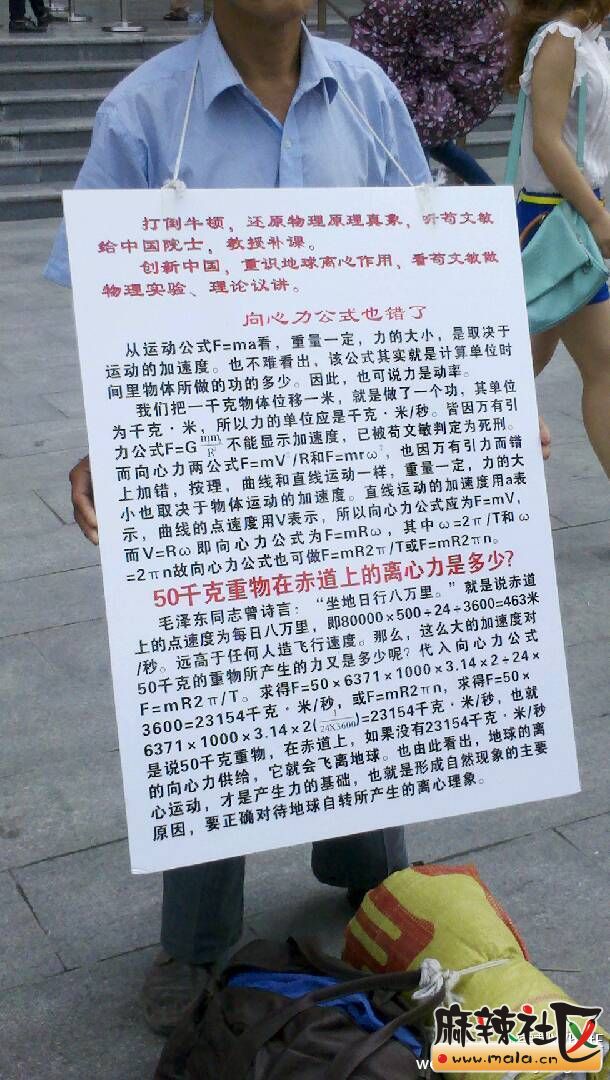 打倒牛顿，还原物理原理真象，听苟文敏
给中国院士，教授补课。
创新中国，重识地球离心作用，看苟文敏做
物理实验、理论议讲。
向心力公式也错了
从运动公式F=ma看，重量一定，力的大小，是取决于
运动的加速度。也不难看出，该公式其实就是计算单位时
间里物体所做的功的多少。因此，也可说力是动率。
我们把一千克物体位移一米，就是做了一个功，其单位
为千克·米，所以力的单位应是千克·米/秒。皆因万有引
力公式F=G mm/R² 不能显示加速度，已被苟文敏判定为死刑。
而向心力两公式F=mV²/R和F=mrω²，也因万有引力而错
上加错，按理，曲线和直线运动一样，重量一定，力的大
小也取决于物体运动的加速度。直线运动的加速度用a表
示，曲线的点速度用V表示，所以向心力公式应为F=mV，
而V=Rω即向心力公式为F=mRω，其中ω=2π/T和ω
=2πn故向心力公式也可做F=mR2π/T或F=mR2πn。
50千克重物在赤道上的离心力是多少?
毛泽东同志曾诗言：“坐地日行八万里。”就是说赤道
上的点速度为每日八万里，即80000×500÷24÷3600=463米
/秒。远高于任何人造飞行速度。那么，这么大的加速度对
50千克的重物所产生的力又是多少呢？代入向心力公式
F=mR2π/T。求得F=50×6371×1000×3.14×2÷24×
3600=23154千克·米/秒，或F=mR2πn，求得F=50×
6371×1000×3.14×2(1/24X3600)=23154千克·米/秒，也就
是说50千克重物，在赤道上，如果没有23154千克·米/秒
的向心力供给，它就会飞离地球。也由此看出，地球的离
心运动，才是产生力的基础，也就是形成自然现象的主要
原因，要正确对待地球自转所产生的离心理象。
麻辣社区
www.mala.cn